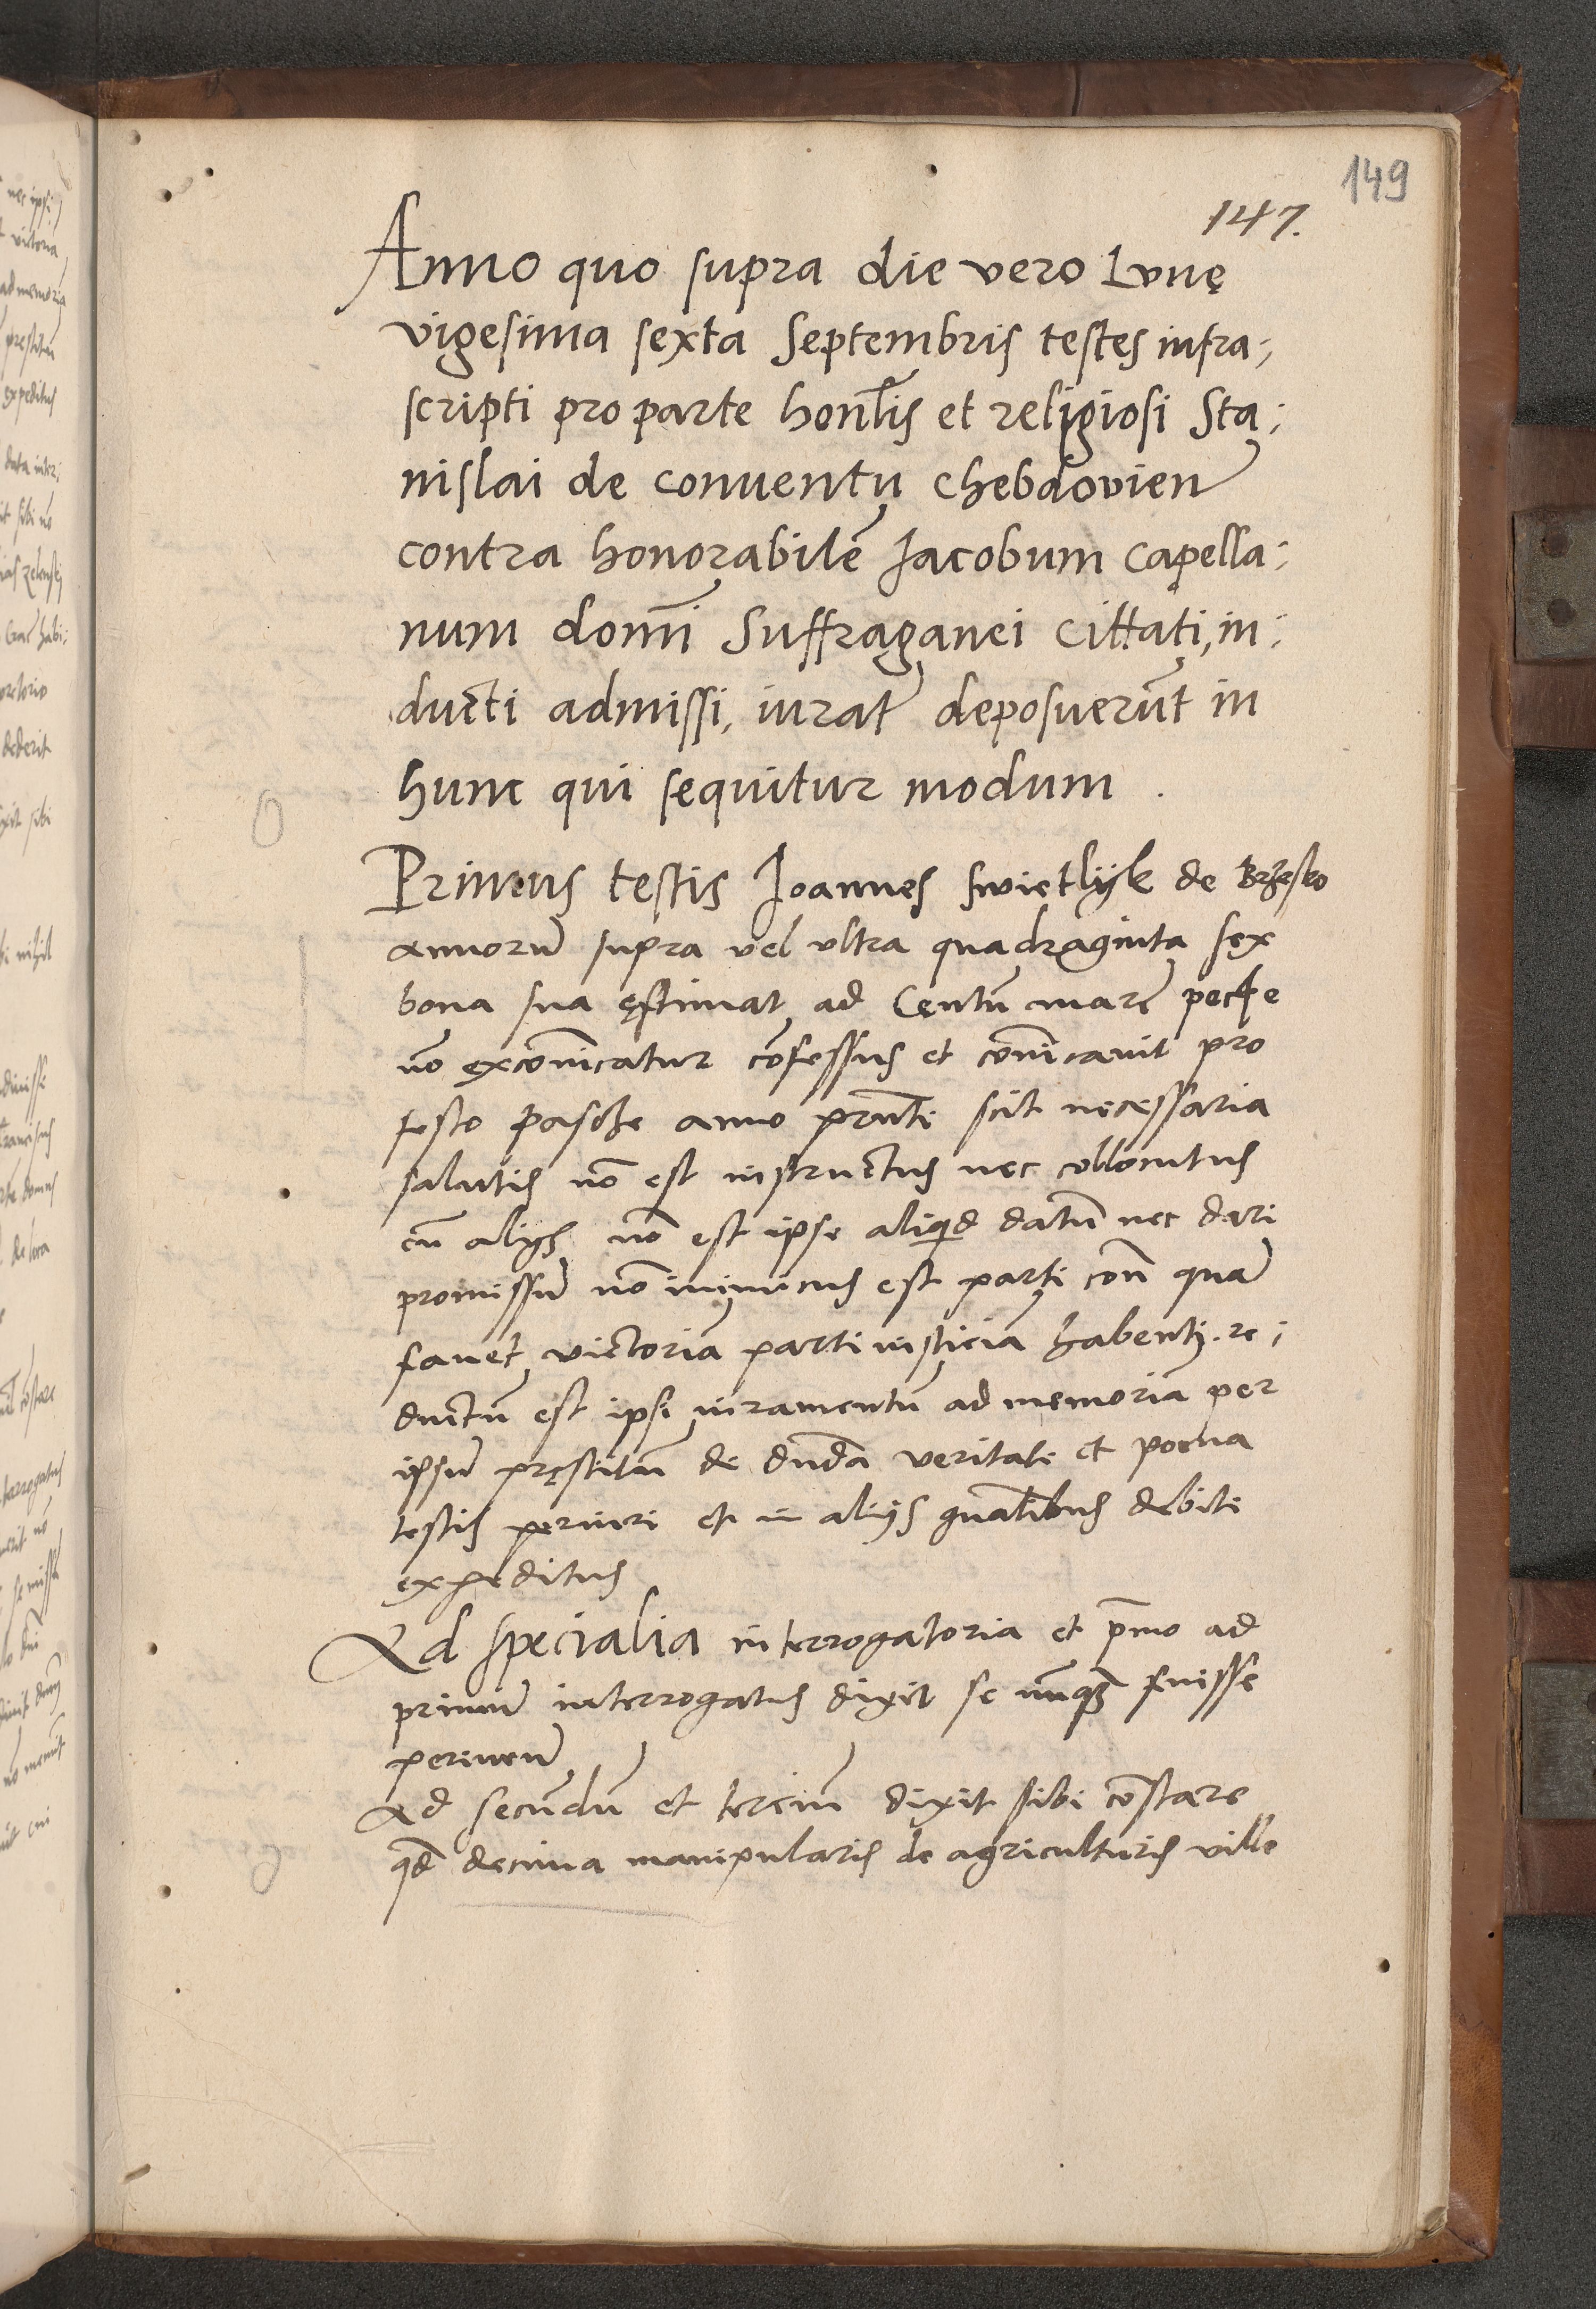 149
147.
Anno quo supra die vero Lunę
vigesima sexta Septembris testes infra;
scripti pro parte hon̄lis et religiosi Sta;
nislai de conuentu chebdovien̄
contra honorabilē Jacobum capella;
num domī Suffraganei Cittati, in;
ducti admissi, iurat̄ deposuerūt in
hunc qui sequitur modum .
Primus testis Joannes Swietlijk de Brzesko
annorū supra vel vltra quadraginta sex
bona sua ęstimat ad Centū marc̄
nō excōnicatur cōfessus et cōnicauit pro
festo Pasche anno pñti scit necessaria
salutis nō est instructus nec collocutus
cū alijs nō est ipse aliqid datū nec dari
promissū nō inimicus est parti con̄ quā
fauet victoriā parti iusticiā habenti. re;
ductū est ipsi iuramentū ad memoriā per
ipsū pręstitū de dn̄da veritate et poena
testis periuri et in alijs gn̄alibus debite
expeditus
Ad specialia interrogatoria et p̄mo ad
primū interrogatus dixit se nūq̄ fuisse
periurū
Ad secūdū et terciū dixit sibi cōstare
qđ decima manipularis de agriculturis ville